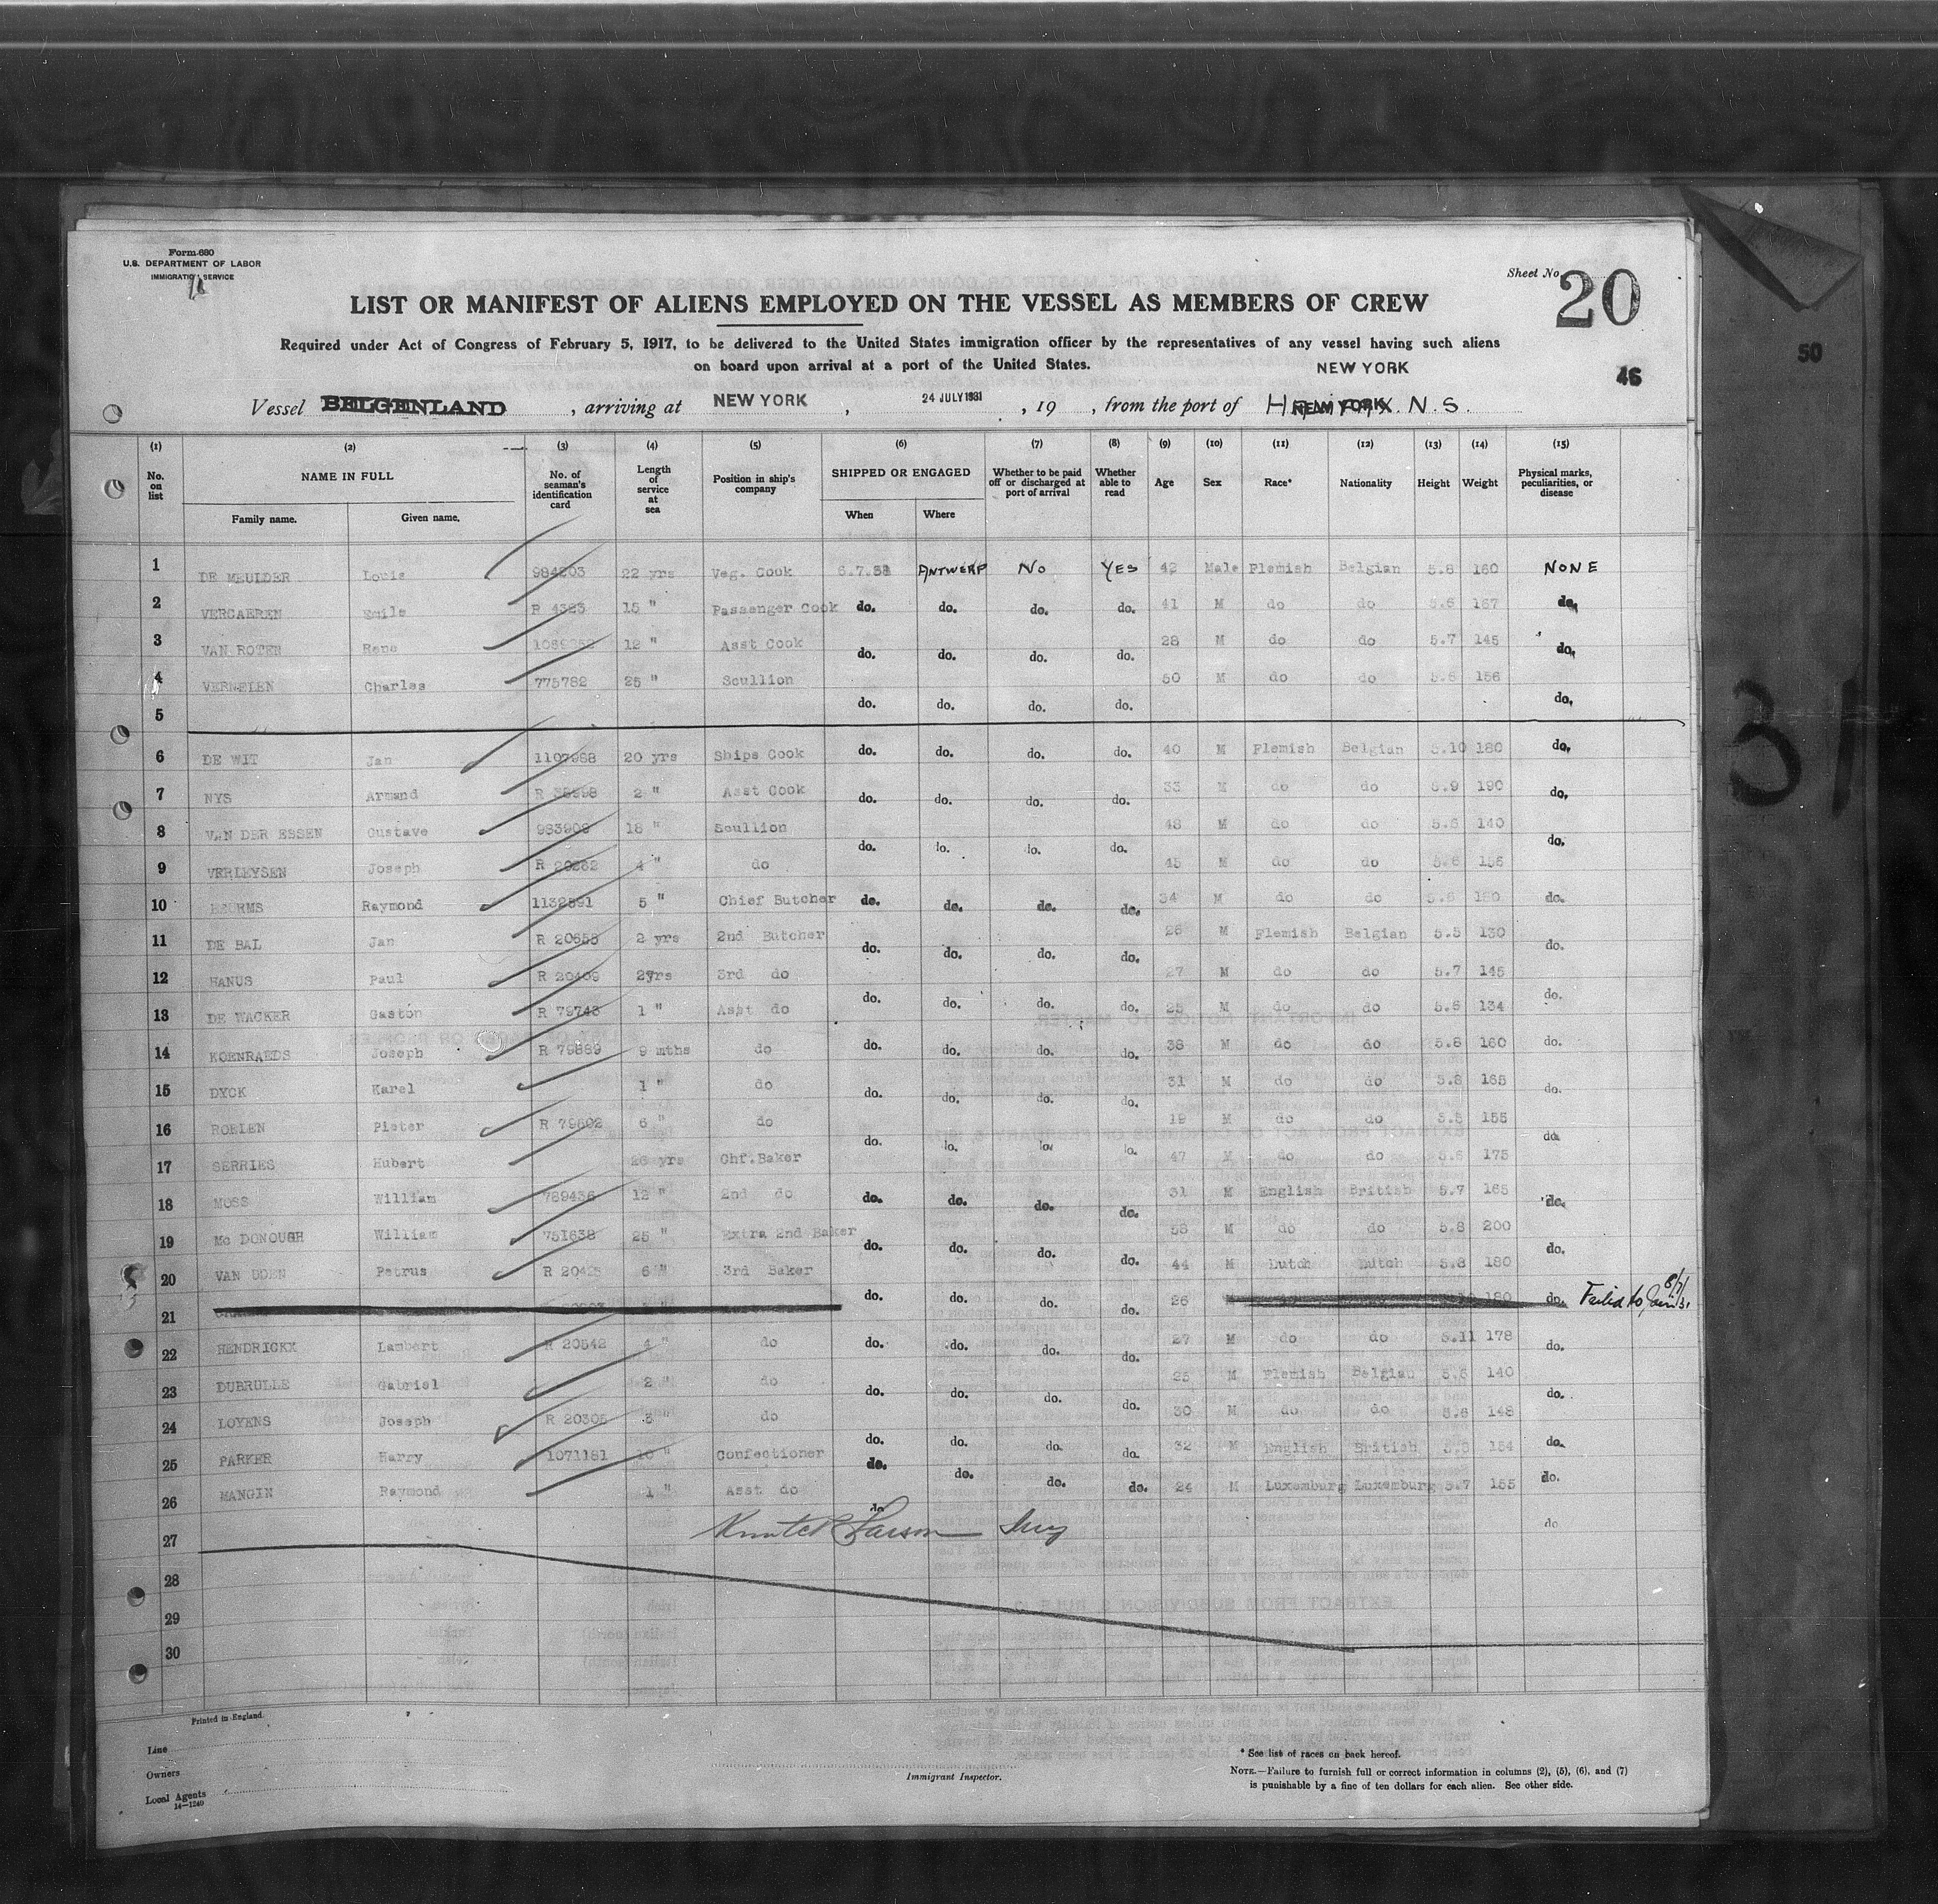 Form 680
U.S. DEPARTMENT OF LABOR
IMMIGRATION SERVICE
Sheet No. 20
LIST OR MANIFEST OF ALIENS EMPLOYED ON THE VESSEL AS MEMBERS OF CREW
Required under Act of Congress of February 5, 1917, to be delivered to the United States immigration officer by the representatives of any vessel having such aliens
on board upon arrival at a port of the United States.
NEW YORK
46
50
Vessel BELGENLAND, arriving at NEW YORK, 24 JULY 1931, 19 , from the port of HALIFAX. N.S.
(1) (2) (3) (4) (5) (6) (7) (8) (9) (10) (11) (12) (13) (14) (15)
No. on list NAME IN FULL No. of seaman's identification card Length of service at sea Position in ship's company SHIPPED OR ENGAGED Whether to be paid off or discharged at port of arrival Whether able to read Age Sex Race* Nationality Height Weight Physical marks, peculiarities, or disease
Family name. Given name. When Where
1 DE MEULDER Louis 984203 22 yrs Veg. Cook 6.7.31 ANTWERP NO YES 42 Male Flemish Belgian 5.8 160 NONE
2 VERCAEREN Emile R 4323 15 " Passenger Cook do. do. do. do. 41 M do do 5.6 167 do.
3 VAN ROTEN Rene 12 " Asst Cook do. do. do. do. 28 M do do 5.7 145 do.
4 Charles 775782 25 " Scullion do. do. do. do. 50 M do do 5.6 156 do.
5
6 DE WIT Jan 1107988 20 yrs Ships Cook do. do. do. do. 40 M Flemish Belgian 5.10 180 do.
7 NYS Armand 2 " Asst Cook do. do. do. do. 33 M do do 5.9 190 do.
8 VAN DER ESSEN Gustave 983908 18 " Scullion do. do. do. do. 48 M do do 5.6 140 do.
9 VERLEYSEN Joseph R 20262 4 " do 45 M do do 5.6 156
10 Raymond 1132591 5 " Chief Butcher do. do. do. do. 34 M do do 5.6 do.
11 DE BAL Jan R 20555 2 yrs 2nd Butcher do. do. do. do. 26 M Flemish Belgian 5.5 130 do.
12 HANUS Paul R 20409 2yrs 3rd do do. do. do. do. 27 M do do 5.7 145 do.
13 DE WACKER Gaston R 79743 1 " Asst do 25 M do do 5.6 134
14 KOENRAEDS Joseph R 79889 9 mths do do. do. do. do. 38 M do do 5.8 160 do.
15 DYCK Karel 1 " do do. do. do. do. 31 M do do 5.8 165 do.
16 ROELEN Pieter R 79802 6 " do do. do. do. do. 19 M do do 5.5 155 do.
17 SERRIES Hubert 26 yrs Chf.Baker 47 M do do 5.6 175
18 MOSS William 789436 12 " 2nd do do. do. do. do. 31 M English British 5.7 165 do.
19 Mc DONOUGH William 751638 25 " Extra 2nd Baker do. do. do. do. 58 M do do 5.8 200 do.
20 VAN UDEN Petrus 6 " 3rd Baker do. do. do. 44 M Dutch Dutch 5.8 180
21 26 180 do. Failed to Join
22 HENDRICKX Lambert R 20542 4 " do do. do. do. do. 27 M do do 5.11 178 do.
23 DUBRULLE Gabriel 2 " do do. do. do. do. 25 M Flemish Belgian 5.6 140 do.
24 LOYENS Joseph R 20305 3 " do do. do. do. do. 30 M do do 5.6 148 do.
25 PARKER Harry 1071181 10 " Confectioner do. do. do. do. 32 M English British 154 do.
26 MANGIN Raymond 1 " Asst do do. 24 M Luxemburg Luxemburg 5.7 155 do
27
28
29
30
Printed in England.
Line
Owners
Local Agents
14—1240
Immigrant Inspector.
* See list of races on back hereof.
NOTE.—Failure to furnish full or correct information in columns (2), (5), (6), and (7)
is punishable by a fine of ten dollars for each alien. See other side.